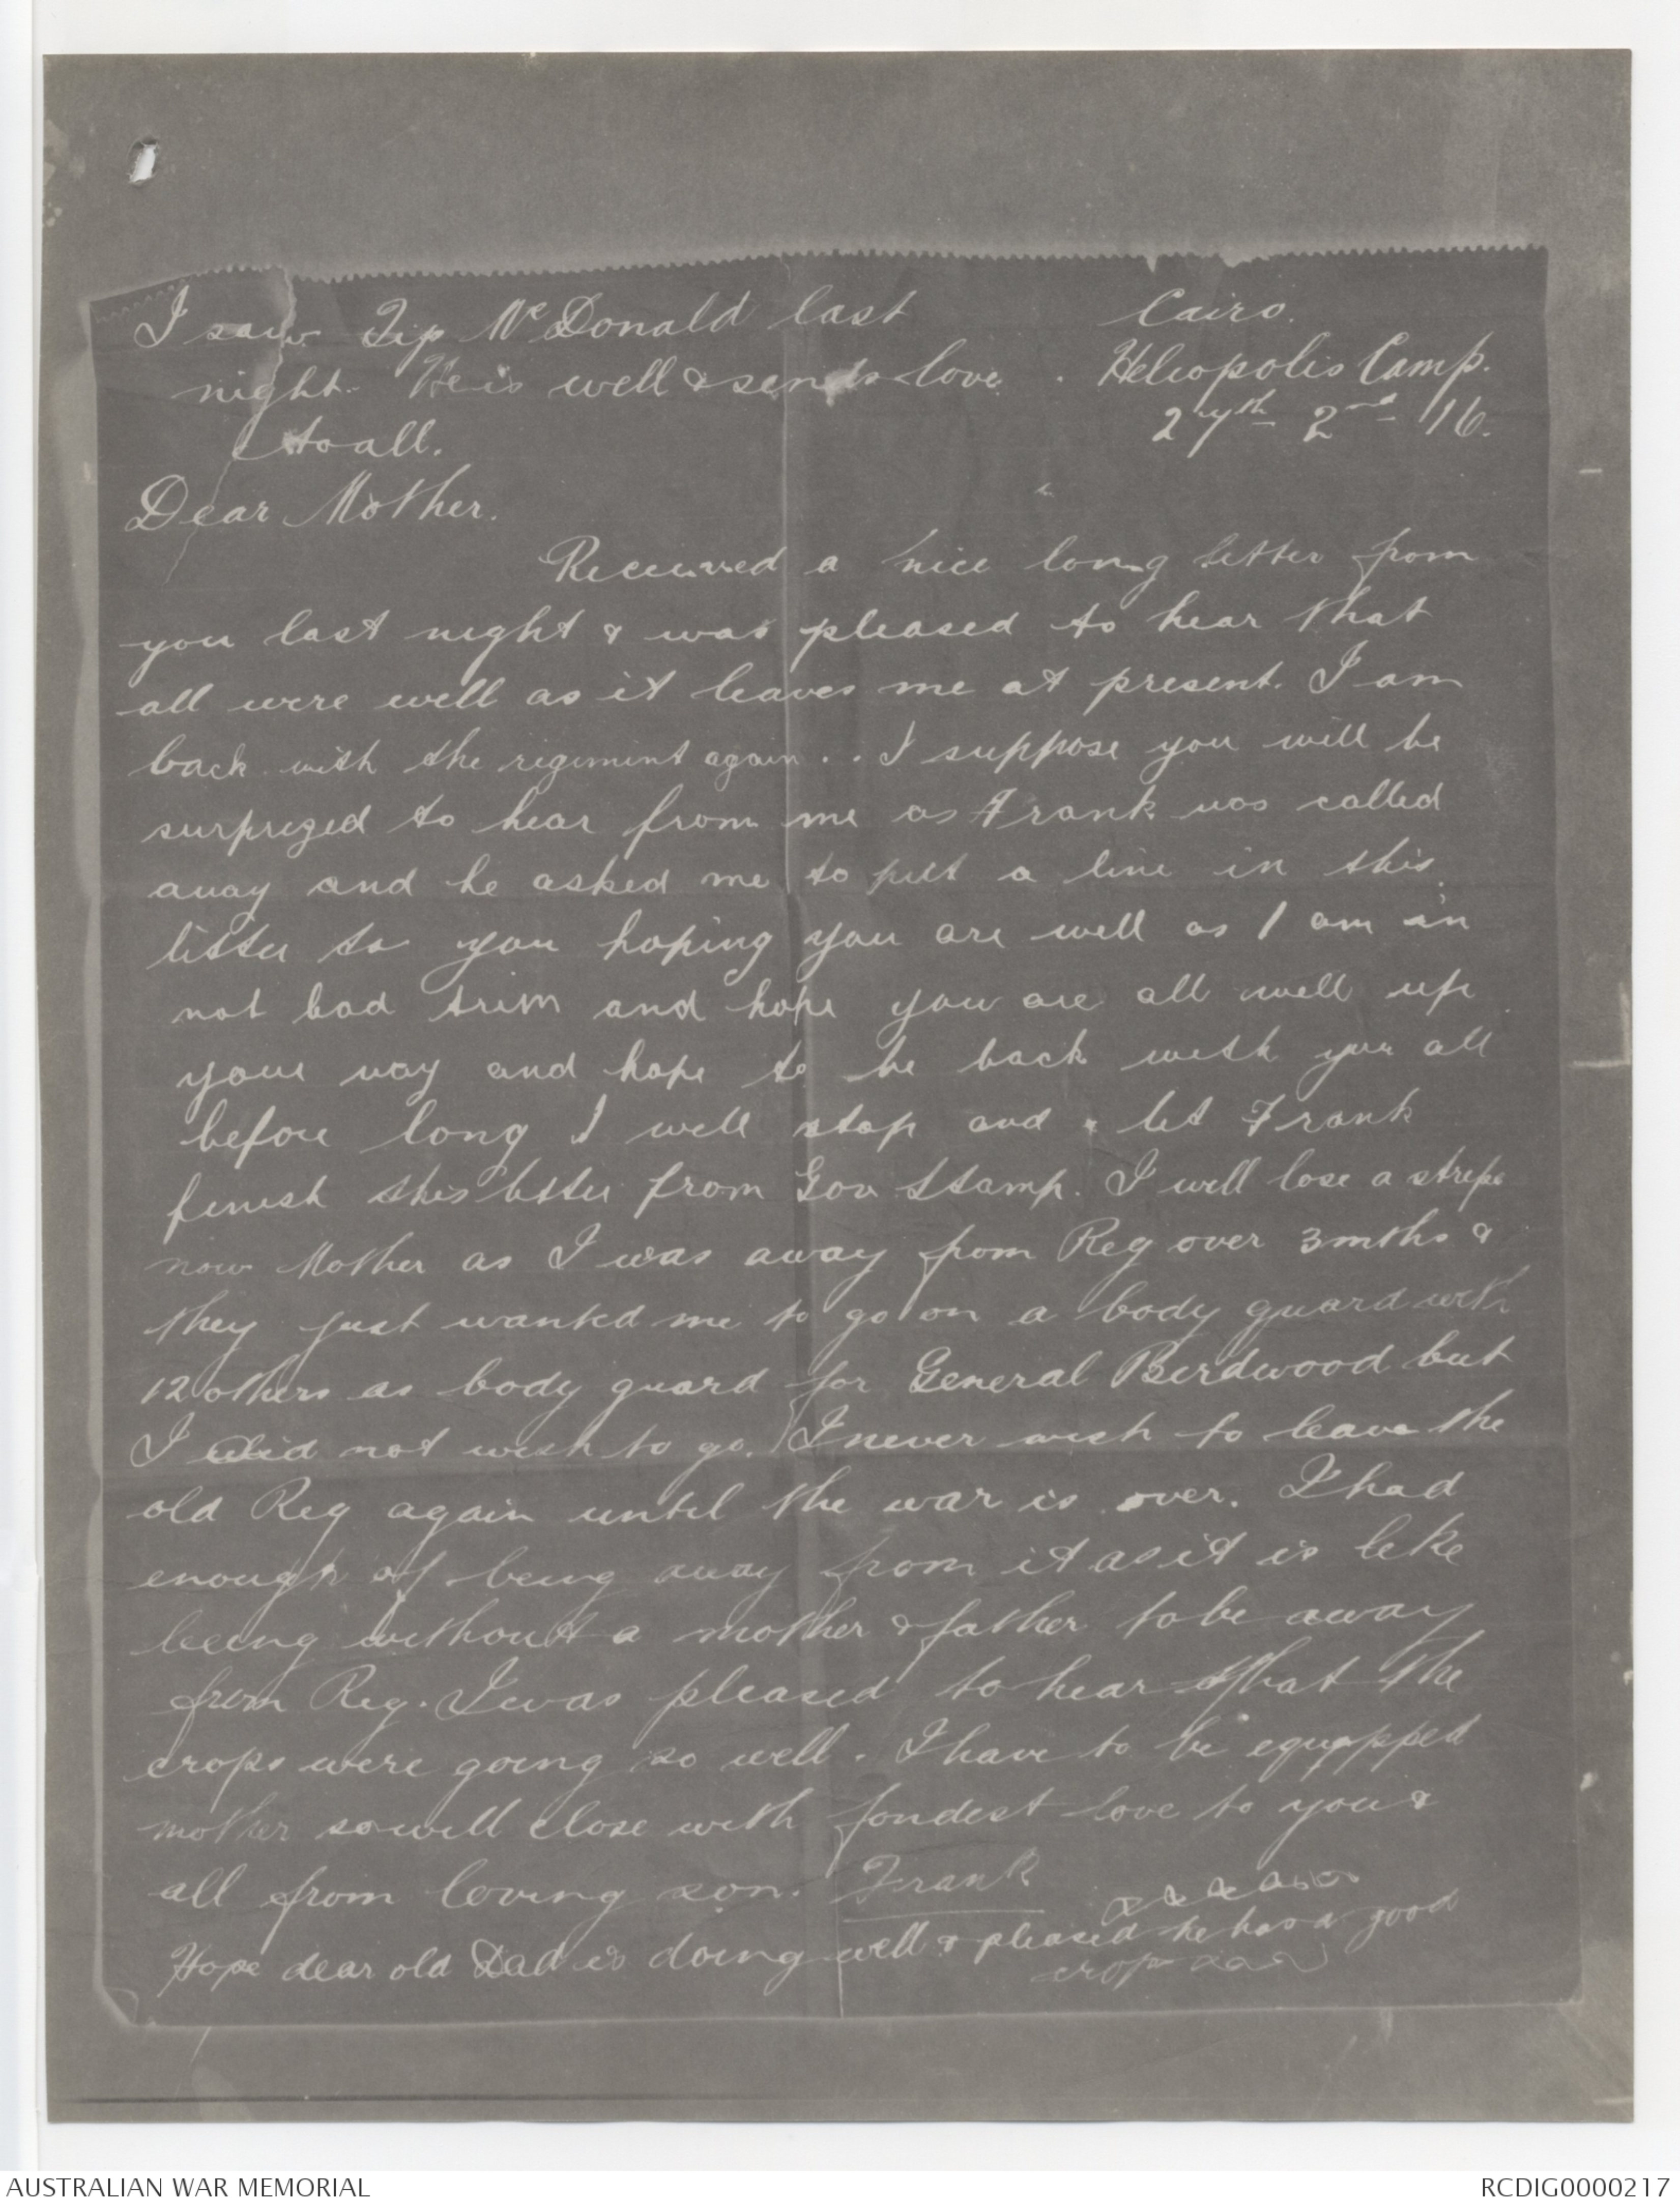 I saw Tip McDonald last
night. He is well & sends love
to all.
Cairo.
Heliopolis Camp.
27th 2nd 16.
Dear Mother.
Received a nice long letter from
you last night & was pleased to hear that
all were well as it leaves me at present. I am
back with the regiment again .. I suppose you will be
surprized to hear from me as Frank was called
away and he asked me to put a line in this
letter to you hoping you are well as I am in
not bad trim and hope you are all well up
your way and hope to be back with you all
before long I will stop and let Frank
finish this letter from Gov Stamp. I will lose a stripe
now Mother as I was away from Reg over 3 mths &
they just wanted me to go on a body guard with
12 others as body guard for General Birdwood but
I did not wish to go. I never wish to leave the
old Reg again until the war is over. I had
enough of being away from it as it is like
being without a mother & father to be away
from Reg. I was pleased to hear that the
crops were going so well. I have to be equipped
mother so will close with fondest love to you &
all from loving son. Frank
Hope dear old Dad is doing well & pleased he has a good
crop
AUSTRALIAN WAR MEMORIAL
RCDIG0000217